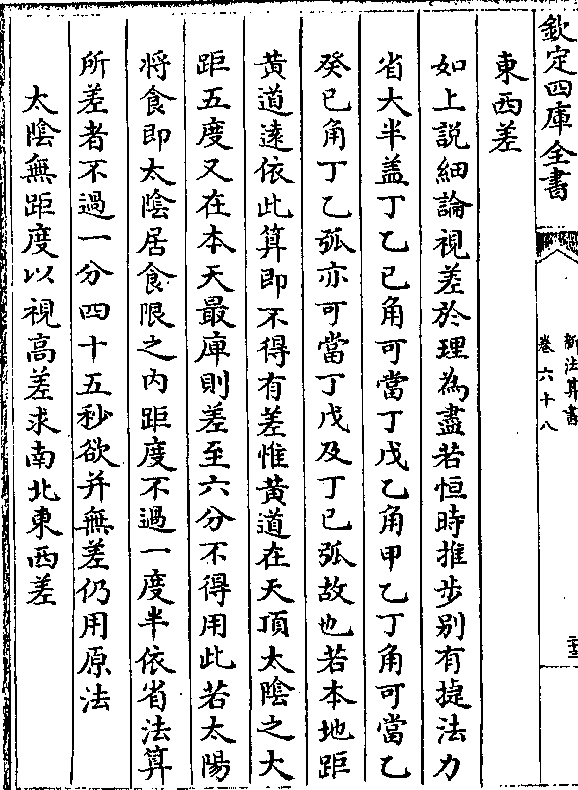 欽定四庫全書
新法算書
卷六十八
東西差
如上說細論視差於理為盡若恒時推步别有捷法力
省大半盖丁乙己角可當丁戊乙角甲乙丁角可當乙
癸己角丁乙弧亦可當丁戊及丁己弧故也若本地距
黄道遠依此算即不得有差惟黄道在天頂太陰之大
距五度又在本天最庳則差至六分不得用此若太陽
将食即太陰居食限之内距度不過一度半依省法算
所差者不過一分四十五秒欲并無差仍用原法
太陰無距度以視高差求南北東西差